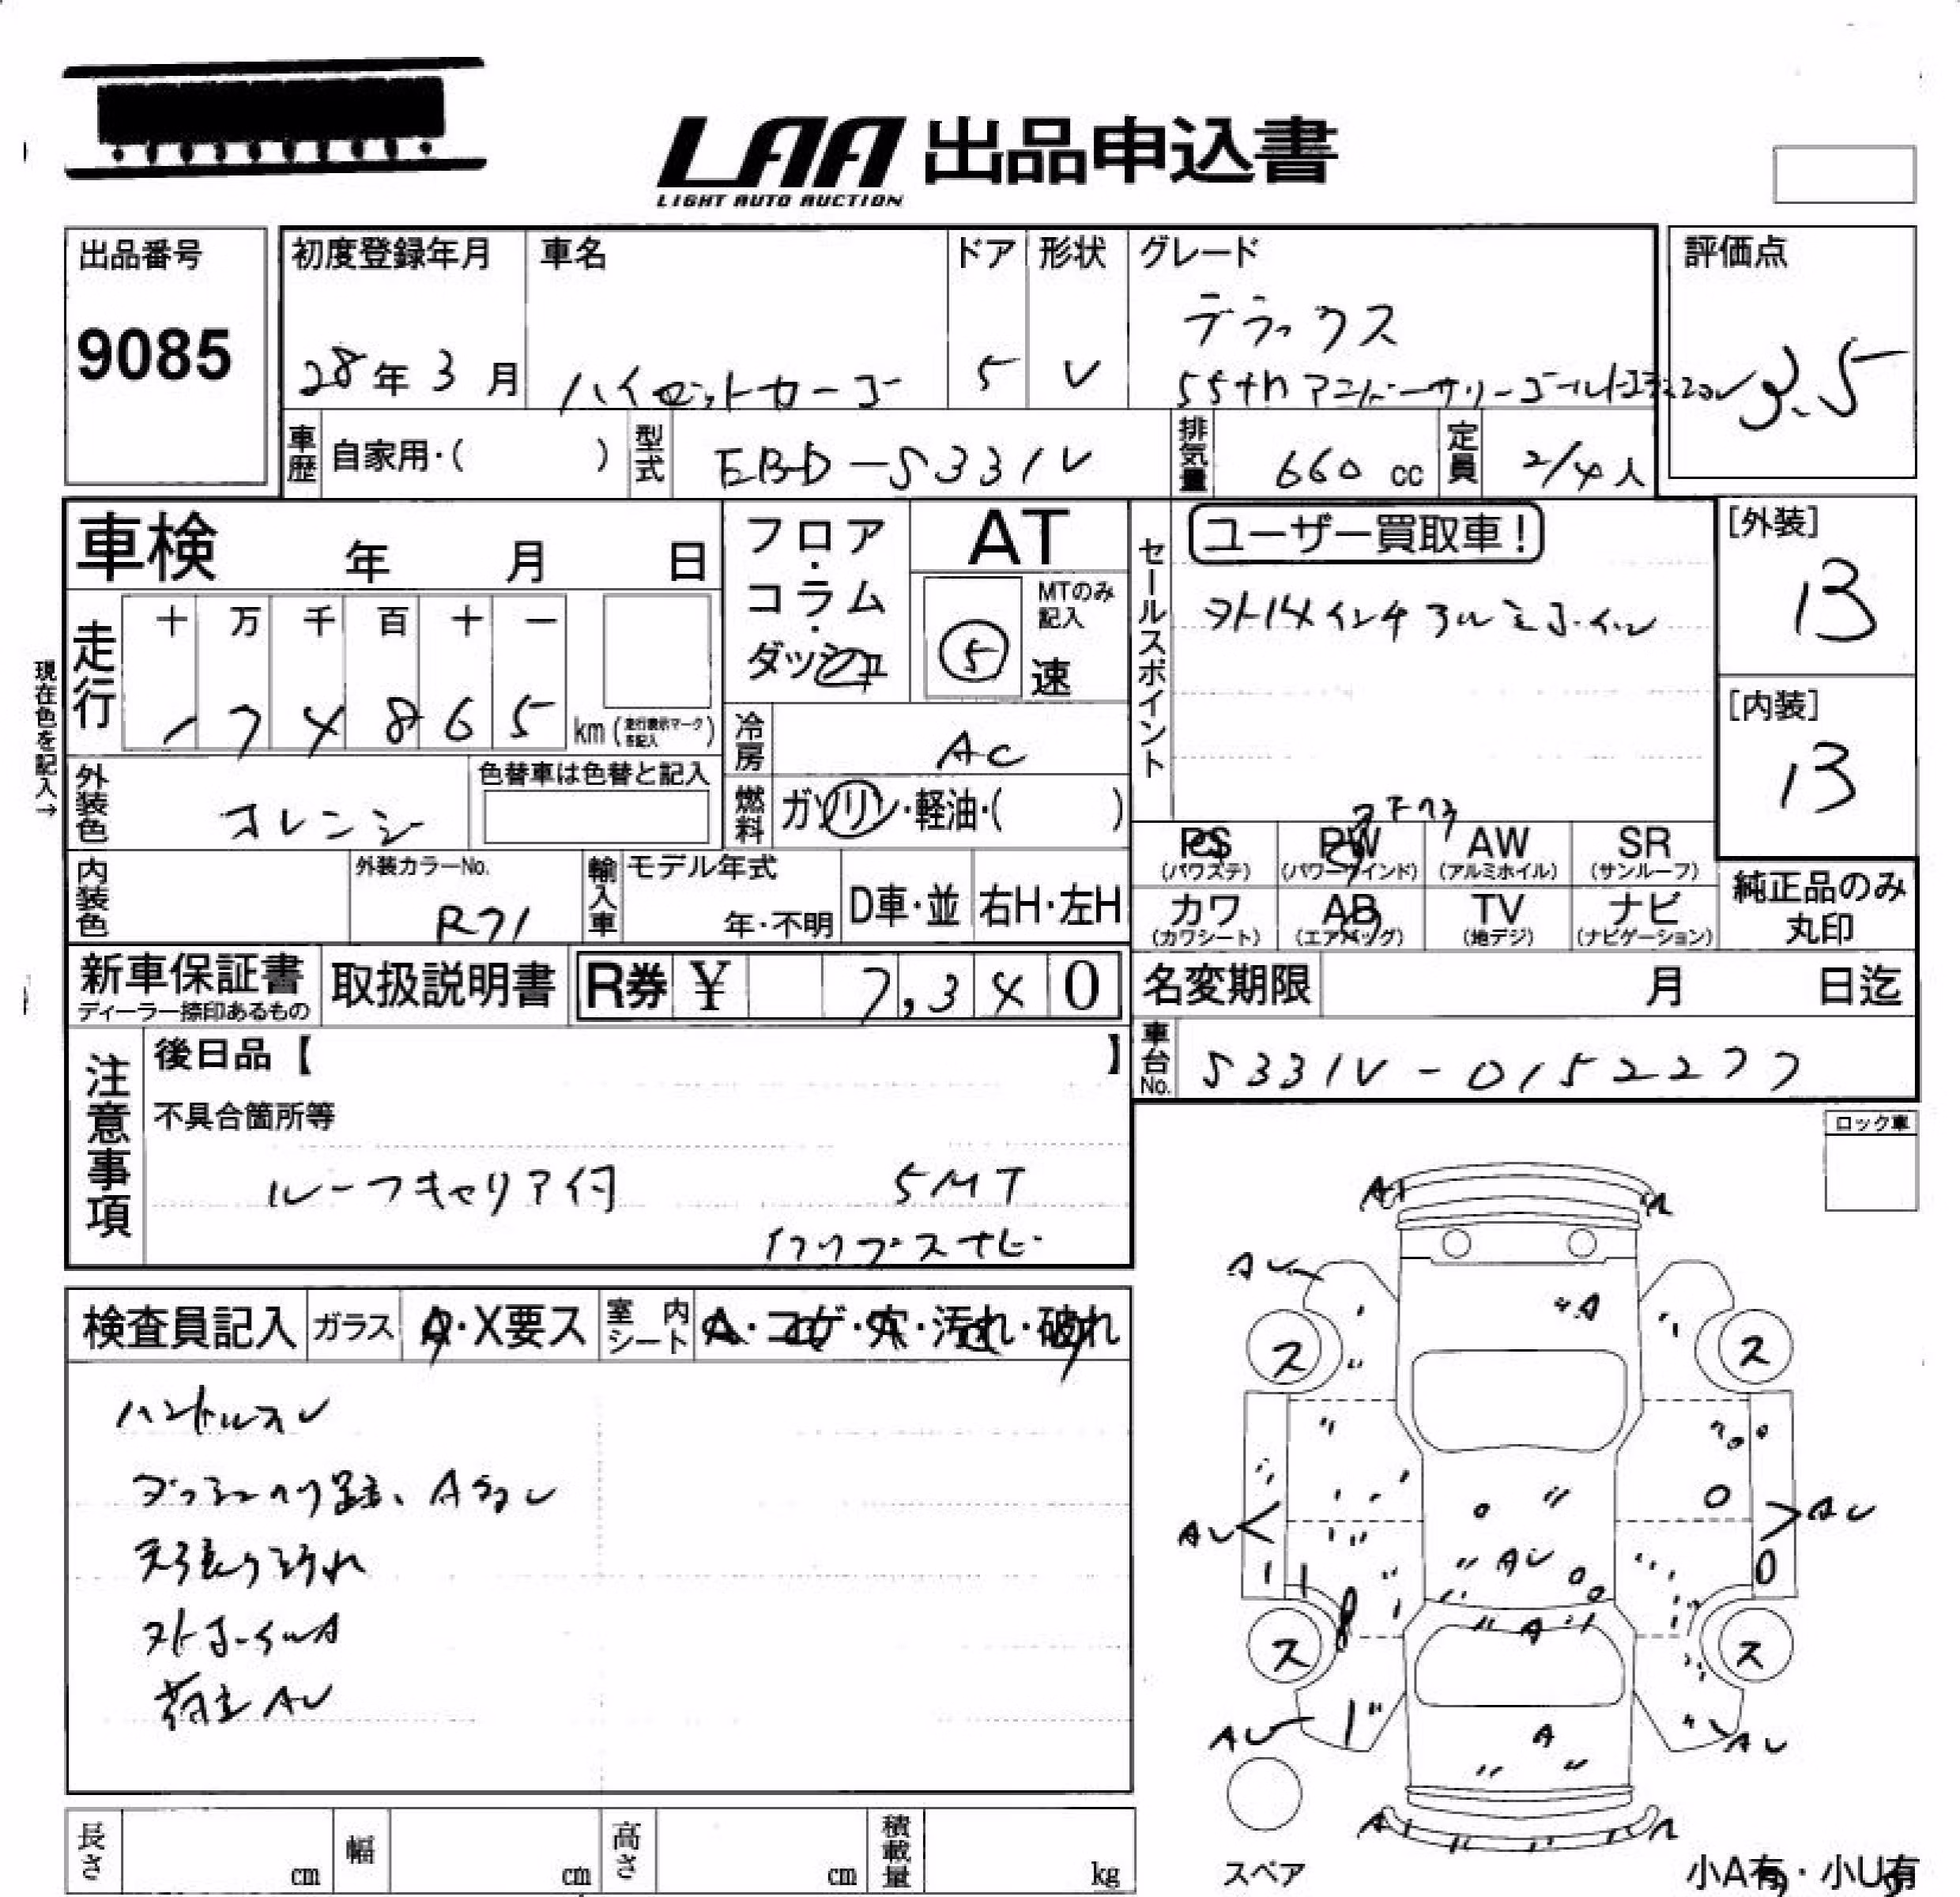 LAA 出品申込書
LIGHT AUTO AUCTION
出品番号
9085
初度登録年月
28年3月
車名
ハイゼットカーゴ
ドア
5
形状
V
グレード
デラックス
55th アニバーサリーゴールドエディション
評価点
3.5
車歴 自家用・( )
型式 EBD-S331V
排気量 660 cc
定員 2/4人
車検 年 月 日
フロア・コラム・ダッシュ
AT
⑤ 速
MTのみ記入
セールスポイント
ユーザー買取車!
外14インチアルミホイル
[外装]
13
[内装]
13
現在色を記入→
走行
十 万 千 百 十 一
1 7 4 8 6 5 km (走行表示マークを記入)
冷房 AC
外装色 オレンジ
色替車は色替と記入
燃料 ガソリン・軽油・( )
内装色
外装カラーNo.
R71
輸入車
モデル年式
年・不明
D車・並
右H・左H
PS (パワステ)
PW (パワーウインド)
AW (アルミホイル)
SR (サンルーフ)
カワ (カワシート)
AB (エアバッグ)
TV (地デジ)
ナビ (ナビゲーション)
純正品のみ丸印
新車保証書
ディーラー捺印あるもの
取扱説明書
R券 ¥ 7,340
名変期限 月 日迄
車台No. S331V-0152277
注意事項
後日品【 】
不具合箇所等
ルーフキャリア付 5MT
イクリプスナビ
ロック車
検査員記入
ガラス A・X要ス
室内シート A・コゲ・穴・汚れ・破れ
ハンドルスレ
ダッシュヘリ跡、Aスレ
天張り汚れ
外ホイルA
荷室AU
A1
AU
A
ス
ス
AU
AU
AU
A
ス
ス
AU
A
AU
A
スペア
小A有・小U有
長さ cm
幅 cm
高さ cm
積載量 kg